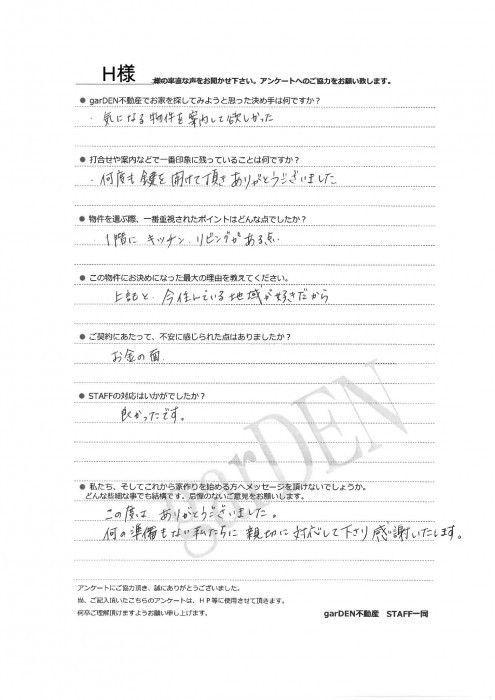 H様
様の率直な声をお聞かせ下さい。アンケートへのご協力をお願い致します。
● garDEN不動産でお家を探してみようと思った決め手は何ですか？
・気になる物件を案内して欲しかった
● 打合せや案内などで一番印象に残っていることは何ですか？
・何度も鍵を開けて頂きありがとうございました
● 物件を選ぶ際、一番重視されたポイントはどんな点でしたか？
・1階に キッチン、リビングがある点
● この物件にお決めになった最大の理由を教えてください。
上記と、今住んでいる地域が好きだから
● ご契約にあたって、不安に感じられた点はありましたか？
お金の面
● STAFFの対応はいかがでしたか？
良かったです。
garDEN
● 私たち、そしてこれから家作りを始める方へメッセージを頂けないでしょうか。
どんな些細な事でも結構です。忌憚のないご意見をお願いします。
この度は ありがとうございました。
何の準備もない私たちに 親切に対応して下さり感謝いたします。
アンケートにご協力頂き、誠にありがとうございました。
尚、ご記入頂いたこちらのアンケートは、HP等に使用させて頂きます。
何卒ご理解頂けますようお願い申し上げます。
garDEN不動産 STAFF一同